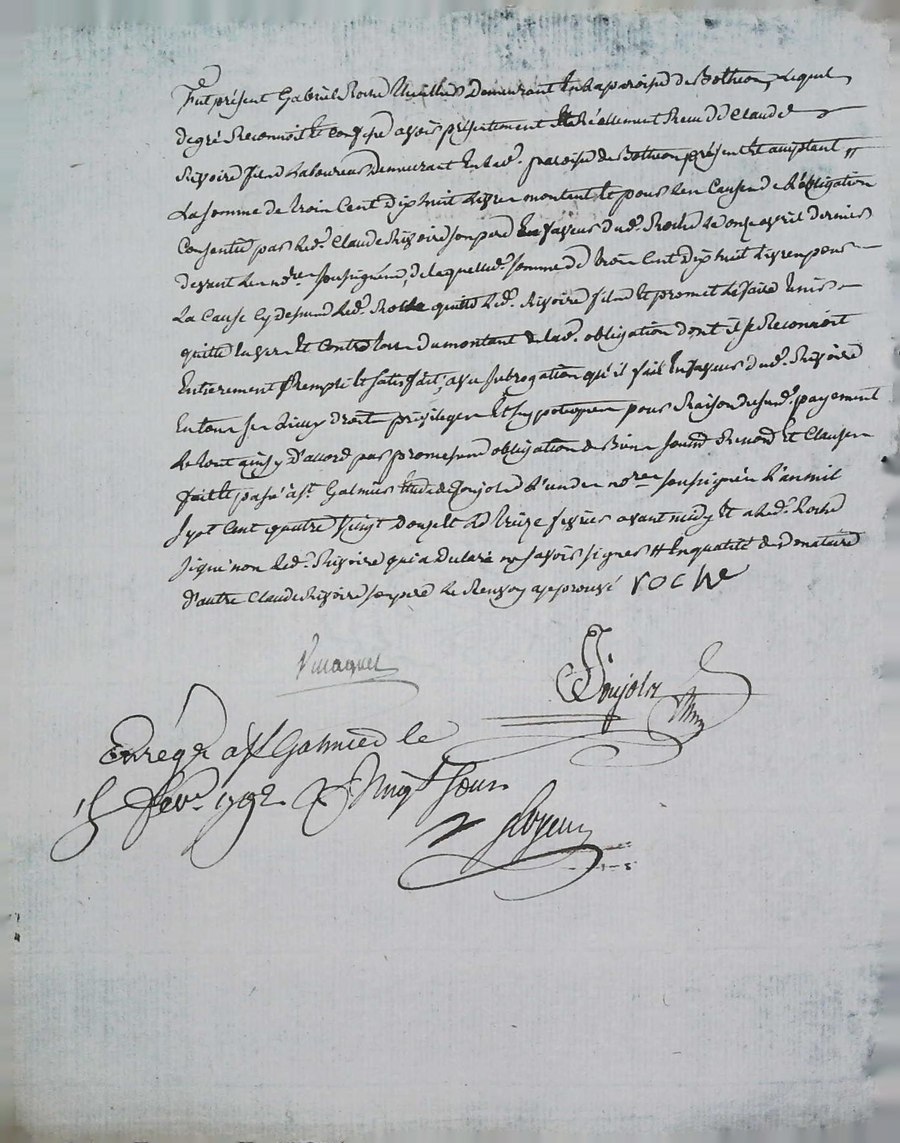 Fut présent Gabriel Roche Demeurant En la paroisse de Botheon, Lequel
de gré Reconnoit Et Confesse avoir présentement Et Réellement Receu de Claude
Rivoire fils Laboureur Demeurant En lad. paroisse de Botheon présent Et acceptant #
La somme de trois Cent dix huit Livres montant Et pour les Causes de L'obligation
Consentie par led. Claude Rivoire son pere En faveur dud. Roche Le onze avril dernier
devant Le nore soussigné, de laquelle somme de trois Cent dix huit Livres pour
La Cause Cy dessus Led. Roche quitte Led. Rivoire fils Et promet Le faire tenir
quitte Envers Et Contre tous du montant de lad. obligation dont il se Reconnoit
Entierement Rempli Et Satisfait, avec subrogation qu'il fait En faveur dud. Rivoire
En tous ses Lieux droits privileges Et hypoteques pour Raison dud. payement
Le tout ainsy D'accord par promesses obligation de Biens soumis Renon Et Clauses
fait Et passé a St Galmier Etude de Goujols L'un des nores soussignés L'an mil
Sept Cent quatre vingt douze Et Le treize fevrier avant midy Et a Led. Roche
signé non Led. Rivoire qui a declaré ne savoir signer # En qualité de Donataire
d'autre Claude Rivoire son pere Le Renvoy approuvé roche
Goujols
Enregé a St Galmier le
15 fevr. 1792 Vingt Sous